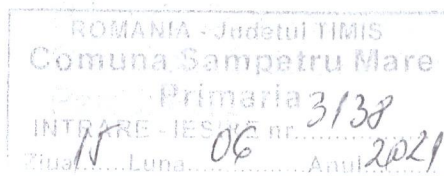 ROMANIA - Judetul TIMIS
Comuna Sampetru Mare
Primaria
INTRARE - IESIRE nr. 3138
Ziua 15 Luna 06 Anul 2021